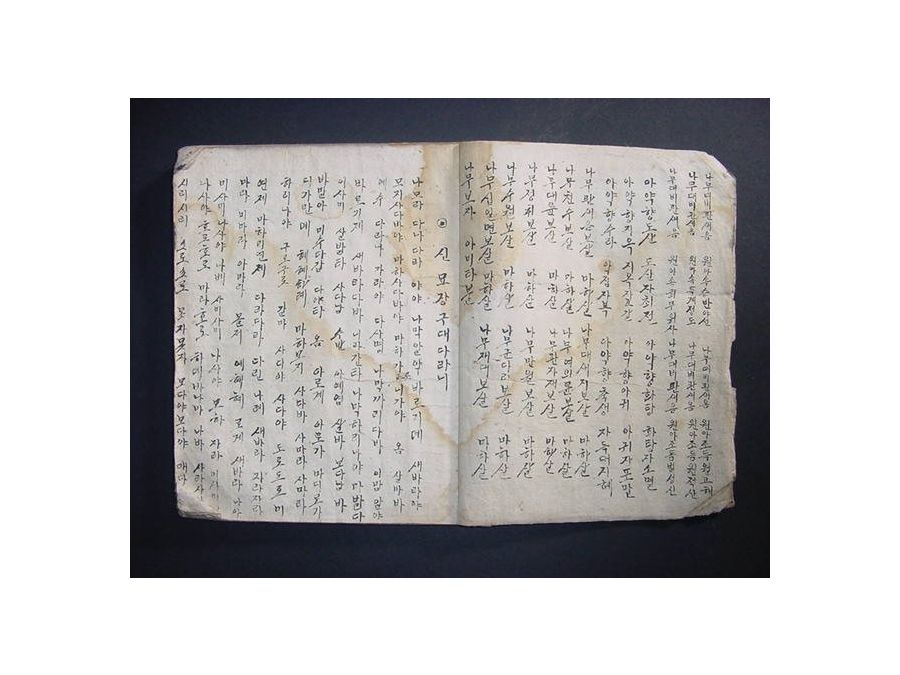 나무대비관세음 나무대비관세음 원아조득월고해
나무대비관세음 원아속득계정도 나무대비관세음 원아조등원적산
나무대비관세음 원아속회무위사 나무대비관세음 원아조동법성신
아약향도산 도산자최절 아약향화탕 화탕자소멸
아약향지옥 지옥자고갈 아약향아귀 아귀자포만
아약향수라 아약향축생 자득대지혜
나무관세음보살 마하살 나무대세지보살 마하살
나무천수보살 마하살 나무여의륜보살 마하살
나무대륜보살 마하살 나무관자재보살 마하살
나무정취보살 마하살 나무만월보살 마하살
나무수월보살 마하살 나무군다리보살 마하살
나무십일면보살 마하살 나무제대보살 마하살
아미타불
신묘장구대다라니
나모라 다나다라 야야 나막알약바르기데 새바라야
모지사다바야 마하사다바야 마하가로니가야 옴 살바바
예수 다라나 가라야 다사명 나막까리다바 이맘 알야
바르기제 새바라다바 니라간타 나막하리나야 마발다
이사미 살발타 사다남 수반 아예염 살바 보다남 바
바말아 미수다감 다냐타 옴 아로계 아로가 마디로가
디가란데 혜혜하례 마하모지 사다바 사마라 사마라
하리나야 구로구로 갈마 사다야 사다야 도로도로 미
연제 마하미연제 다라다라 다린 나례 새바라 자라자라
마라 미마라 아마라 몰제 예혜혜 로계 새바라 라아
미사미 나사야 나베 사미사미 나사야 모하 자라 미사미
나사야 호로호로 마라호로 하례바나마 나바 사라사
시리시리 소로소로 못쟈못쟈 모다야모다야 매다